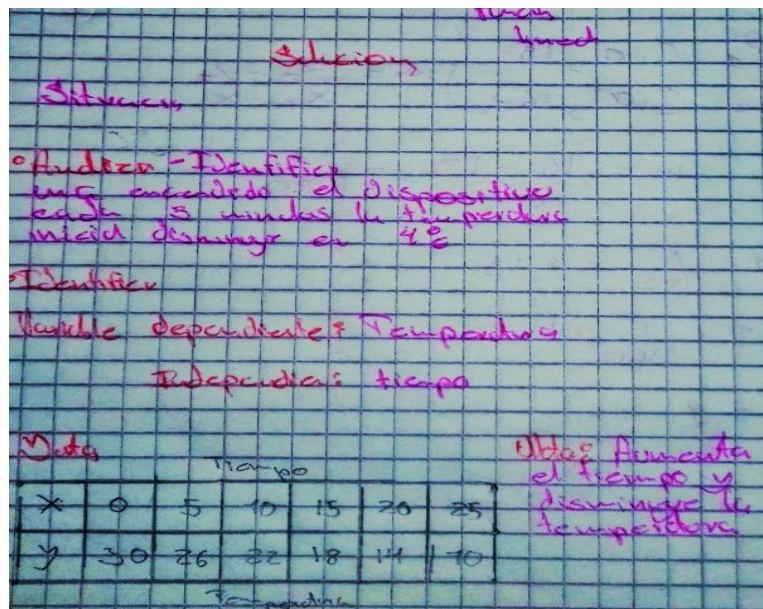 Solucion
Situacion
• Analizar - Identifica
encendido el dispositivo
cada 5 minutos la temperatura
inicial disminuye en 4°C
• Identifica
Variable dependiente: Temperatura
tiempo
Data
Tiempo
X 0 5 10 15 20 25
y 30 26 22 18 14 10
Temperatura
Aumenta
el tiempo y
disminuye la
temperatura